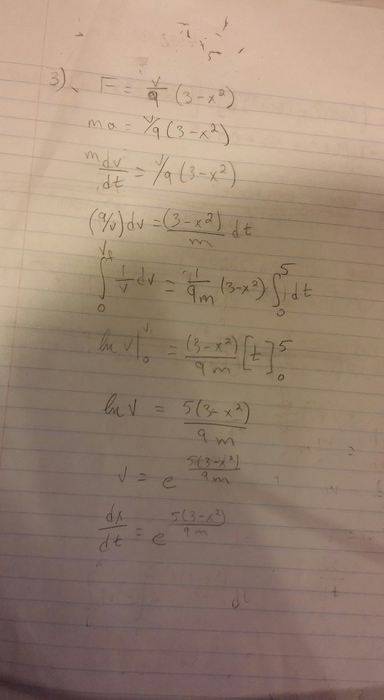 3). F = v/9 (3-x²)
ma = v/9 (3-x²)
m dv/dt = v/9 (3-x²)
(9/v) dv = (3-x²)/m dt
∫₀ 1/v dv = 1/9m (3-x²) ∫₀⁵ dt
ln v |₀ = (3-x²)/9m [t]₀⁵
ln v = 5(3-x²)/9m
v = e^(5(3-x²)/9m)
dx/dt = e^(5(3-x²)/9m)